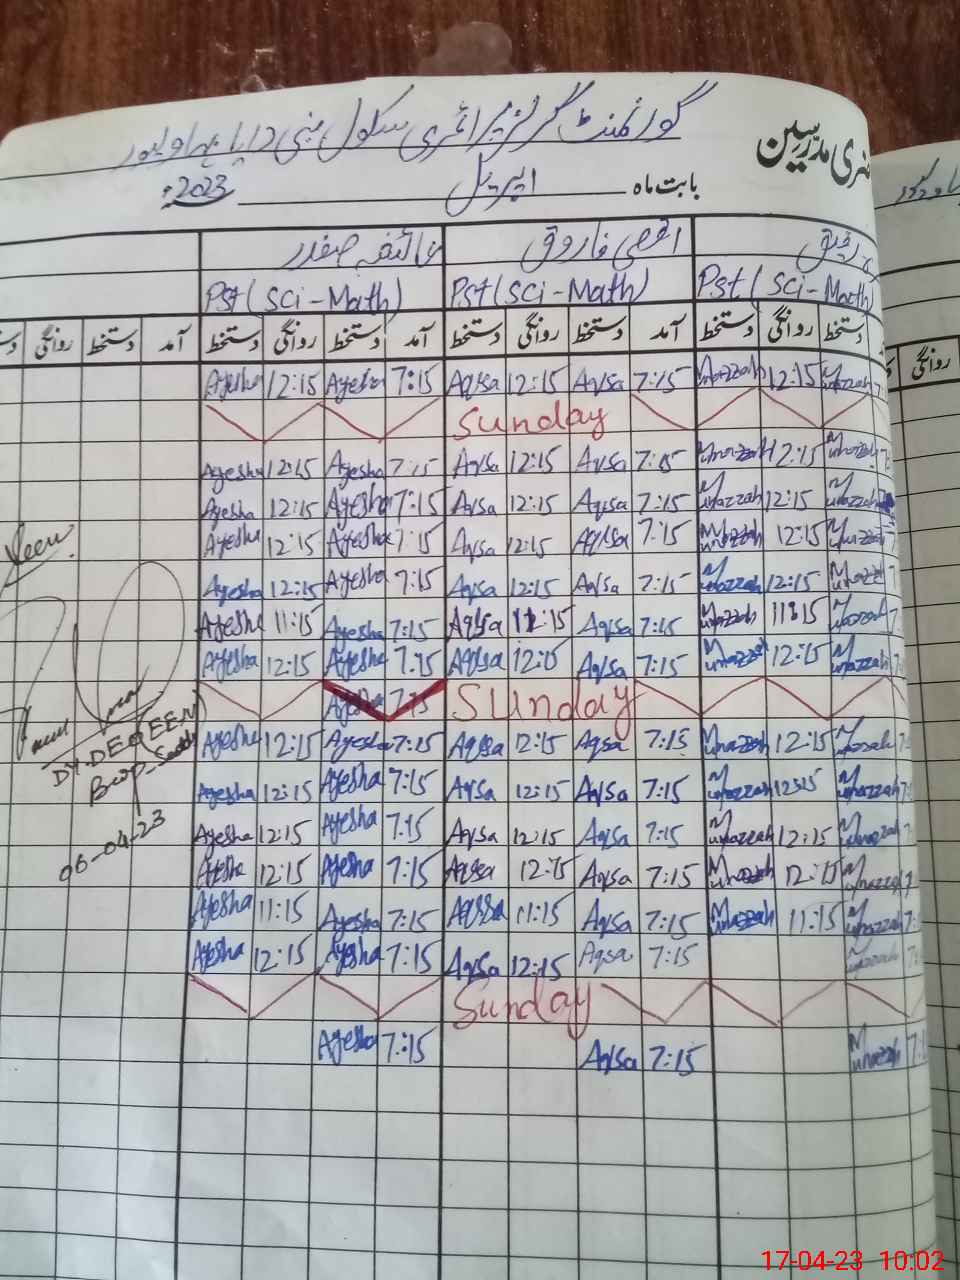 حاضری مدرسین
گورنمنٹ گرلز پرائمری سکول بہاولپور
بابت ماہ اپریل 2023ء
اقصیٰ فاروق عائشہ صفدر
Pst (Sci-Math) Pst (Sci-Math) Pst (Sci-Math)
دستخط روانگی دستخط آمد دستخط روانگی دستخط آمد دستخط روانگی دستخط آمد دستخط روانگی
روانگی
Ayesha 12:15 Ayesha 7:15 Aqsa 12:15 Aqsa 7:15 Muazzah 12:15 Muazzah
Sunday
Ayesha 12:15 Ayesha 7:15 Aqsa 12:15 Aqsa 7:15 Muazzah 12:15 Muazzah
Ayesha 12:15 Ayesha 7:15 Aqsa 12:15 Aqsa 7:15 Muazzah 12:15 Muazzah
Ayesha 12:15 Ayesha 7:15 Aqsa 12:15 Aqsa 7:15 Muazzah 12:15 Muazzah
Seen
Ayesha 12:15 Ayesha 7:15 Aqsa 12:15 Aqsa 7:15 Muazzah 12:15 Muazzah
Ayesha 11:15 Ayesha 7:15 Aqsa 11:15 Aqsa 7:15 Muazzah 11:15 Muazzah
Ayesha 12:15 Ayesha 7:15 Aqsa 12:15 Aqsa 7:15 Muazzah 12:15 Muazzah
Ayesha 7:15 Sunday
Ayesha 12:15 Ayesha 7:15 Aqsa 12:15 Aqsa 7:15 Muazzah 12:15 Muazzah
DY.DEO(EE-W)
Ayesha 12:15 Ayesha 7:15 Aqsa 12:15 Aqsa 7:15 Muazzah 12:15 Muazzah
Ayesha 12:15 Ayesha 7:15 Aqsa 12:15 Aqsa 7:15 Muazzah 12:15 Muazzah
06-04-23
Ayesha 12:15 Ayesha 7:15 Aqsa 12:15 Aqsa 7:15 Muazzah 12:15 Muazzah
Ayesha 11:15 Ayesha 7:15 Aqsa 11:15 Aqsa 7:15 Muazzah 11:15 Muazzah
Ayesha 12:15 Ayesha 7:15 Aqsa 12:15 Aqsa 7:15 Muazzah
Sunday
Ayesha 7:15 Aqsa 7:15 Muazzah
17-04-23 10:02